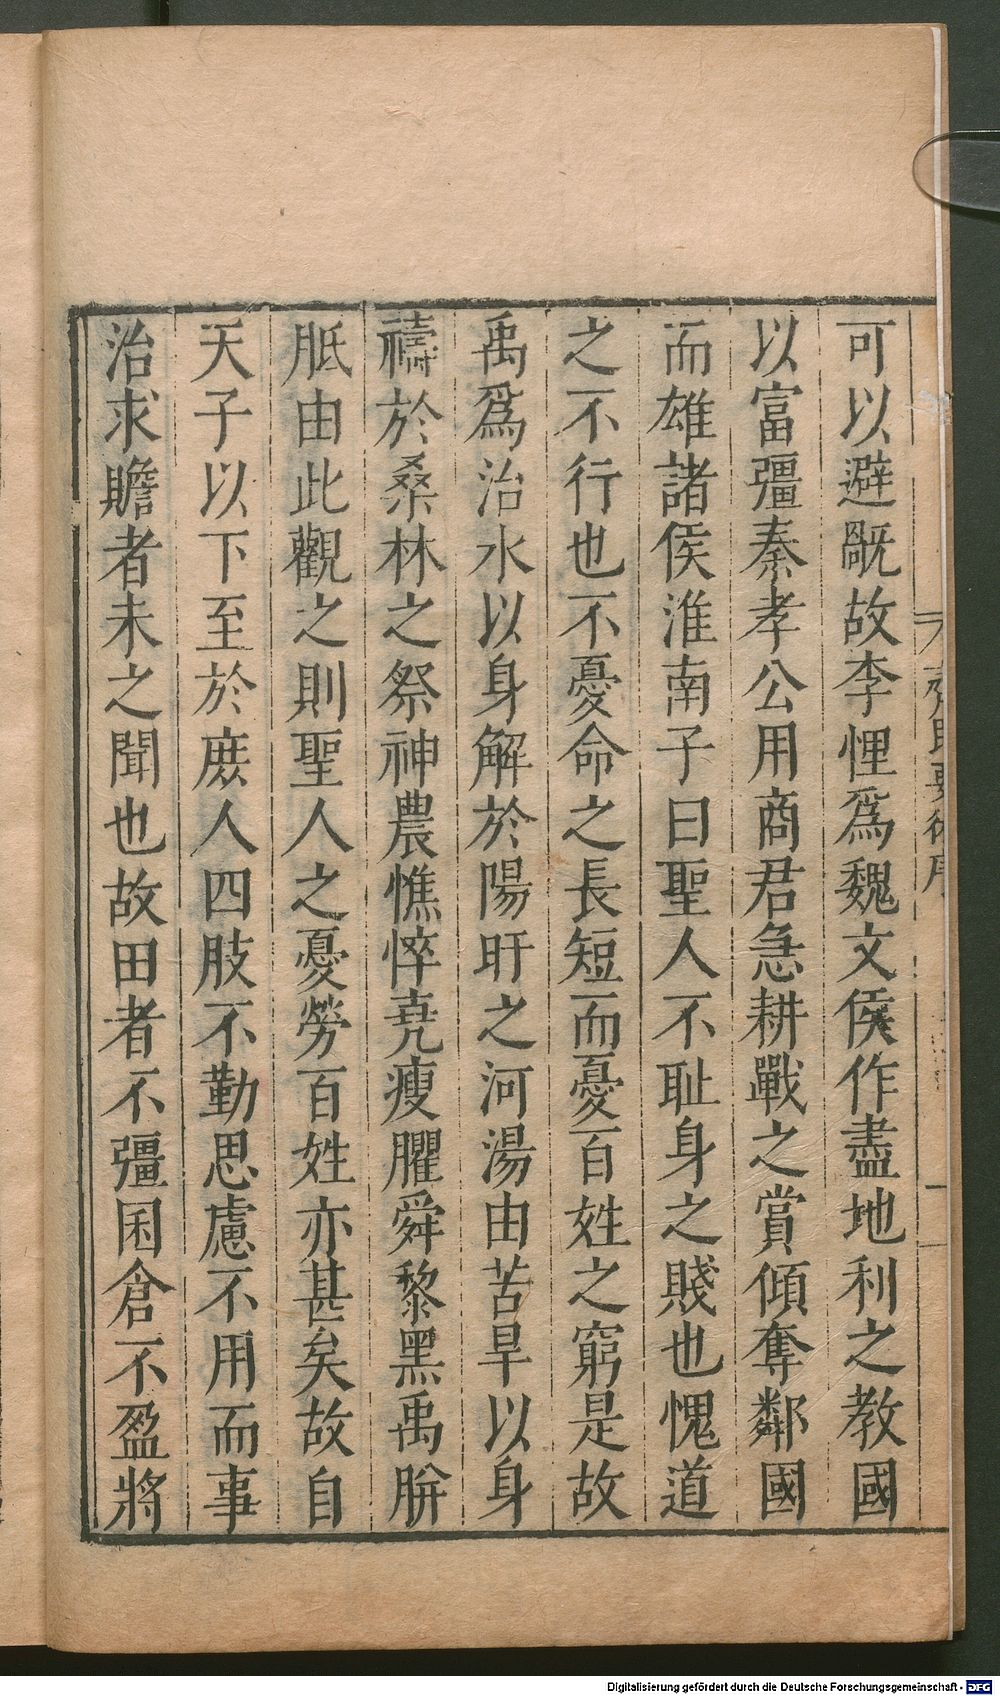 可以避㽉故李悝爲魏文侯作盡地利之教國
以富彊秦孝公用商君急耕戰之賞傾奪鄰國
而雄諸侯淮南子曰聖人不耻身之賤也愧道
之不行也不憂命之長短而憂百姓之窮是故
禹爲治水以身解於陽盱之河湯由苦旱以身
禱於桑林之祭神農憔悴堯瘦臞舜黎黑禹胼
胝由此觀之則聖人之憂勞百姓亦甚矣故自
天子以下至於庶人四肢不勤思慮不用而事
治求贍者未之聞也故田者不彊囷倉不盈將
Digitalisierung gefördert durch die Deutsche Forschungsgemeinschaft - DFG